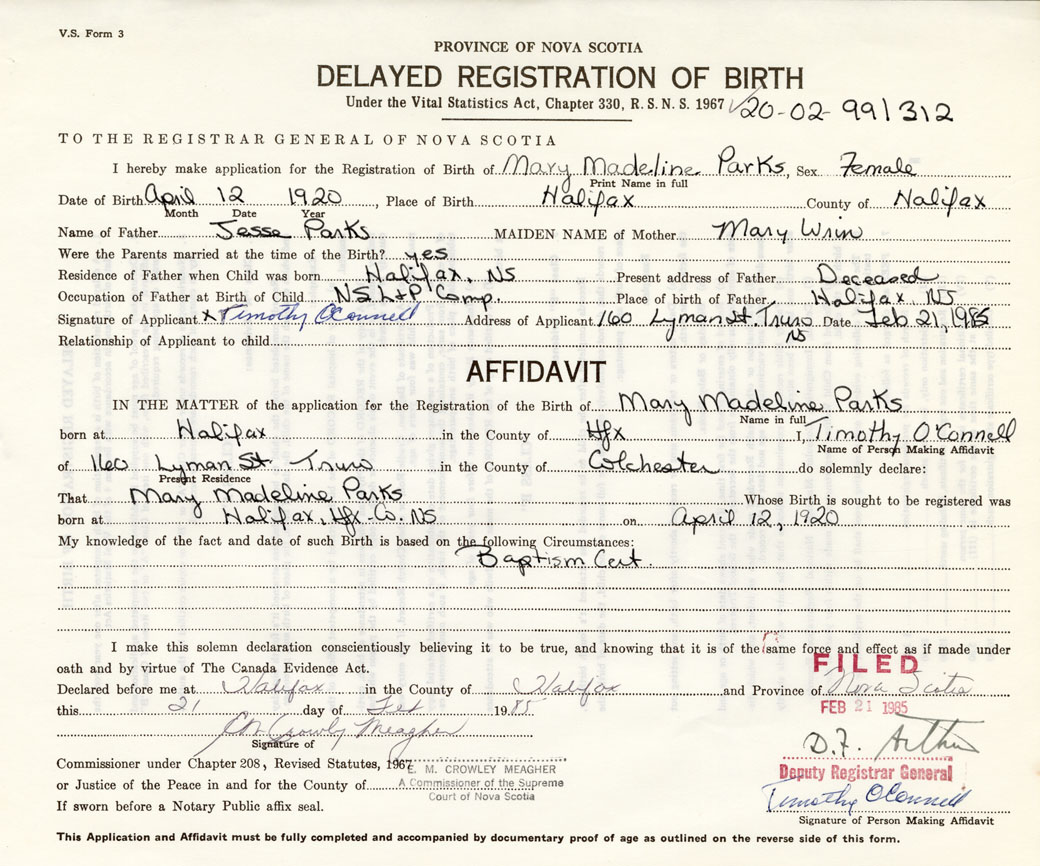 V.S. Form 3
PROVINCE OF NOVA SCOTIA
DELAYED REGISTRATION OF BIRTH
Under the Vital Statistics Act, Chapter 330, R. S. N. S. 1967 20-02-991312
TO THE REGISTRAR GENERAL OF NOVA SCOTIA
I hereby make application for the Registration of Birth of Mary Madeline Parks, Sex Female
Print Name in full
Date of Birth April 12 1920, Place of Birth Halifax County of Halifax
Month Date Year
Name of Father Jesse Parks MAIDEN NAME of Mother Mary Wrin
Were the Parents married at the time of the Birth? yes
Residence of Father when Child was born Halifax, NS Present address of Father Deceased
Occupation of Father at Birth of Child N.S. L+P Comp. Place of birth of Father Halifax NS
Signature of Applicant x Timothy O'Connell Address of Applicant 160 Lyman St. Truro Date Feb 21, 1985
NS
Relationship of Applicant to child
AFFIDAVIT
IN THE MATTER of the application for the Registration of the Birth of Mary Madeline Parks
Name in full
born at Halifax in the County of Hfx I, Timothy O'Connell
Name of Person Making Affidavit
of 160 Lyman St Truro in the County of Colchester do solemnly declare:
Present Residence
That Mary Madeline Parks Whose Birth is sought to be registered was
born at Halifax, Hfx. Co. NS on April 12, 1920
My knowledge of the fact and date of such Birth is based on the following Circumstances:
Baptism Cert.
I make this solemn declaration conscientiously believing it to be true, and knowing that it is of the same force and effect as if made under
oath and by virtue of The Canada Evidence Act.
FILED
Declared before me at Halifax in the County of Halifax and Province of Nova Scotia
this 21 day of Feb 1985
FEB 21 1985
E M Crowley Meagher
Signature of
D. F. Arthur
Commissioner under Chapter 208, Revised Statutes, 1967
E. M. CROWLEY MEAGHER
Deputy Registrar General
or Justice of the Peace in and for the County of
A Commissioner of the Supreme
Court of Nova Scotia
Timothy O'Connell
If sworn before a Notary Public affix seal.
Signature of Person Making Affidavit
This Application and Affidavit must be fully completed and accompanied by documentary proof of age as outlined on the reverse side of this form.